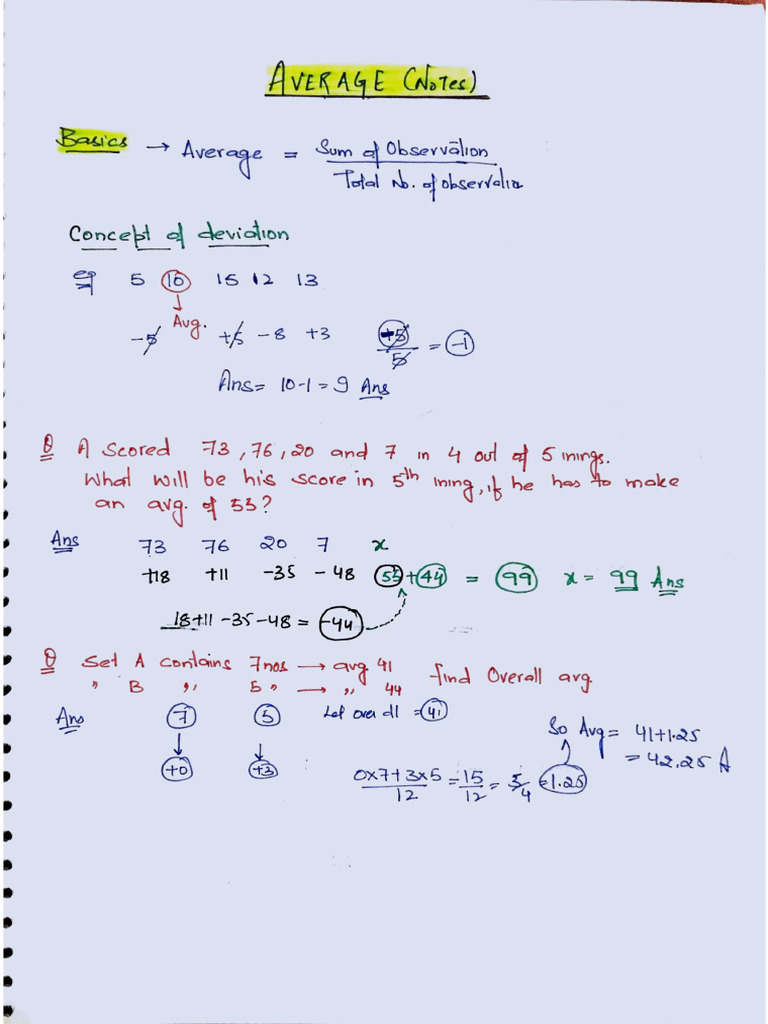 AVERAGE (Notes)
Basics → Average = Sum of Observation / Total No. of observatio
Concept of deviation
eg 5 10 15 12 13
Avg.
-5 +5 -8 +3 +5/5 = -1
Ans = 10-1 = 9 Ans
Q A scored 73, 76, 20 and 7 in 4 out of 5 inings.
What will be his score in 5th ining, if he has to make
an avg. of 55?
Ans 73 76 20 7 x
+18 +11 -35 -48 55+44 = 99 x = 99 Ans
18+11-35-48 = -44
Q Set A contains 7nos → avg 41 find Overall avg
" B " 5 " → " 44
Ans 7 5 Let overall = 41 So Avg = 41+1.25
+0 +3 = 42.25 A
0x7+3x5/12 = 15/12 = 5/4 = 1.25